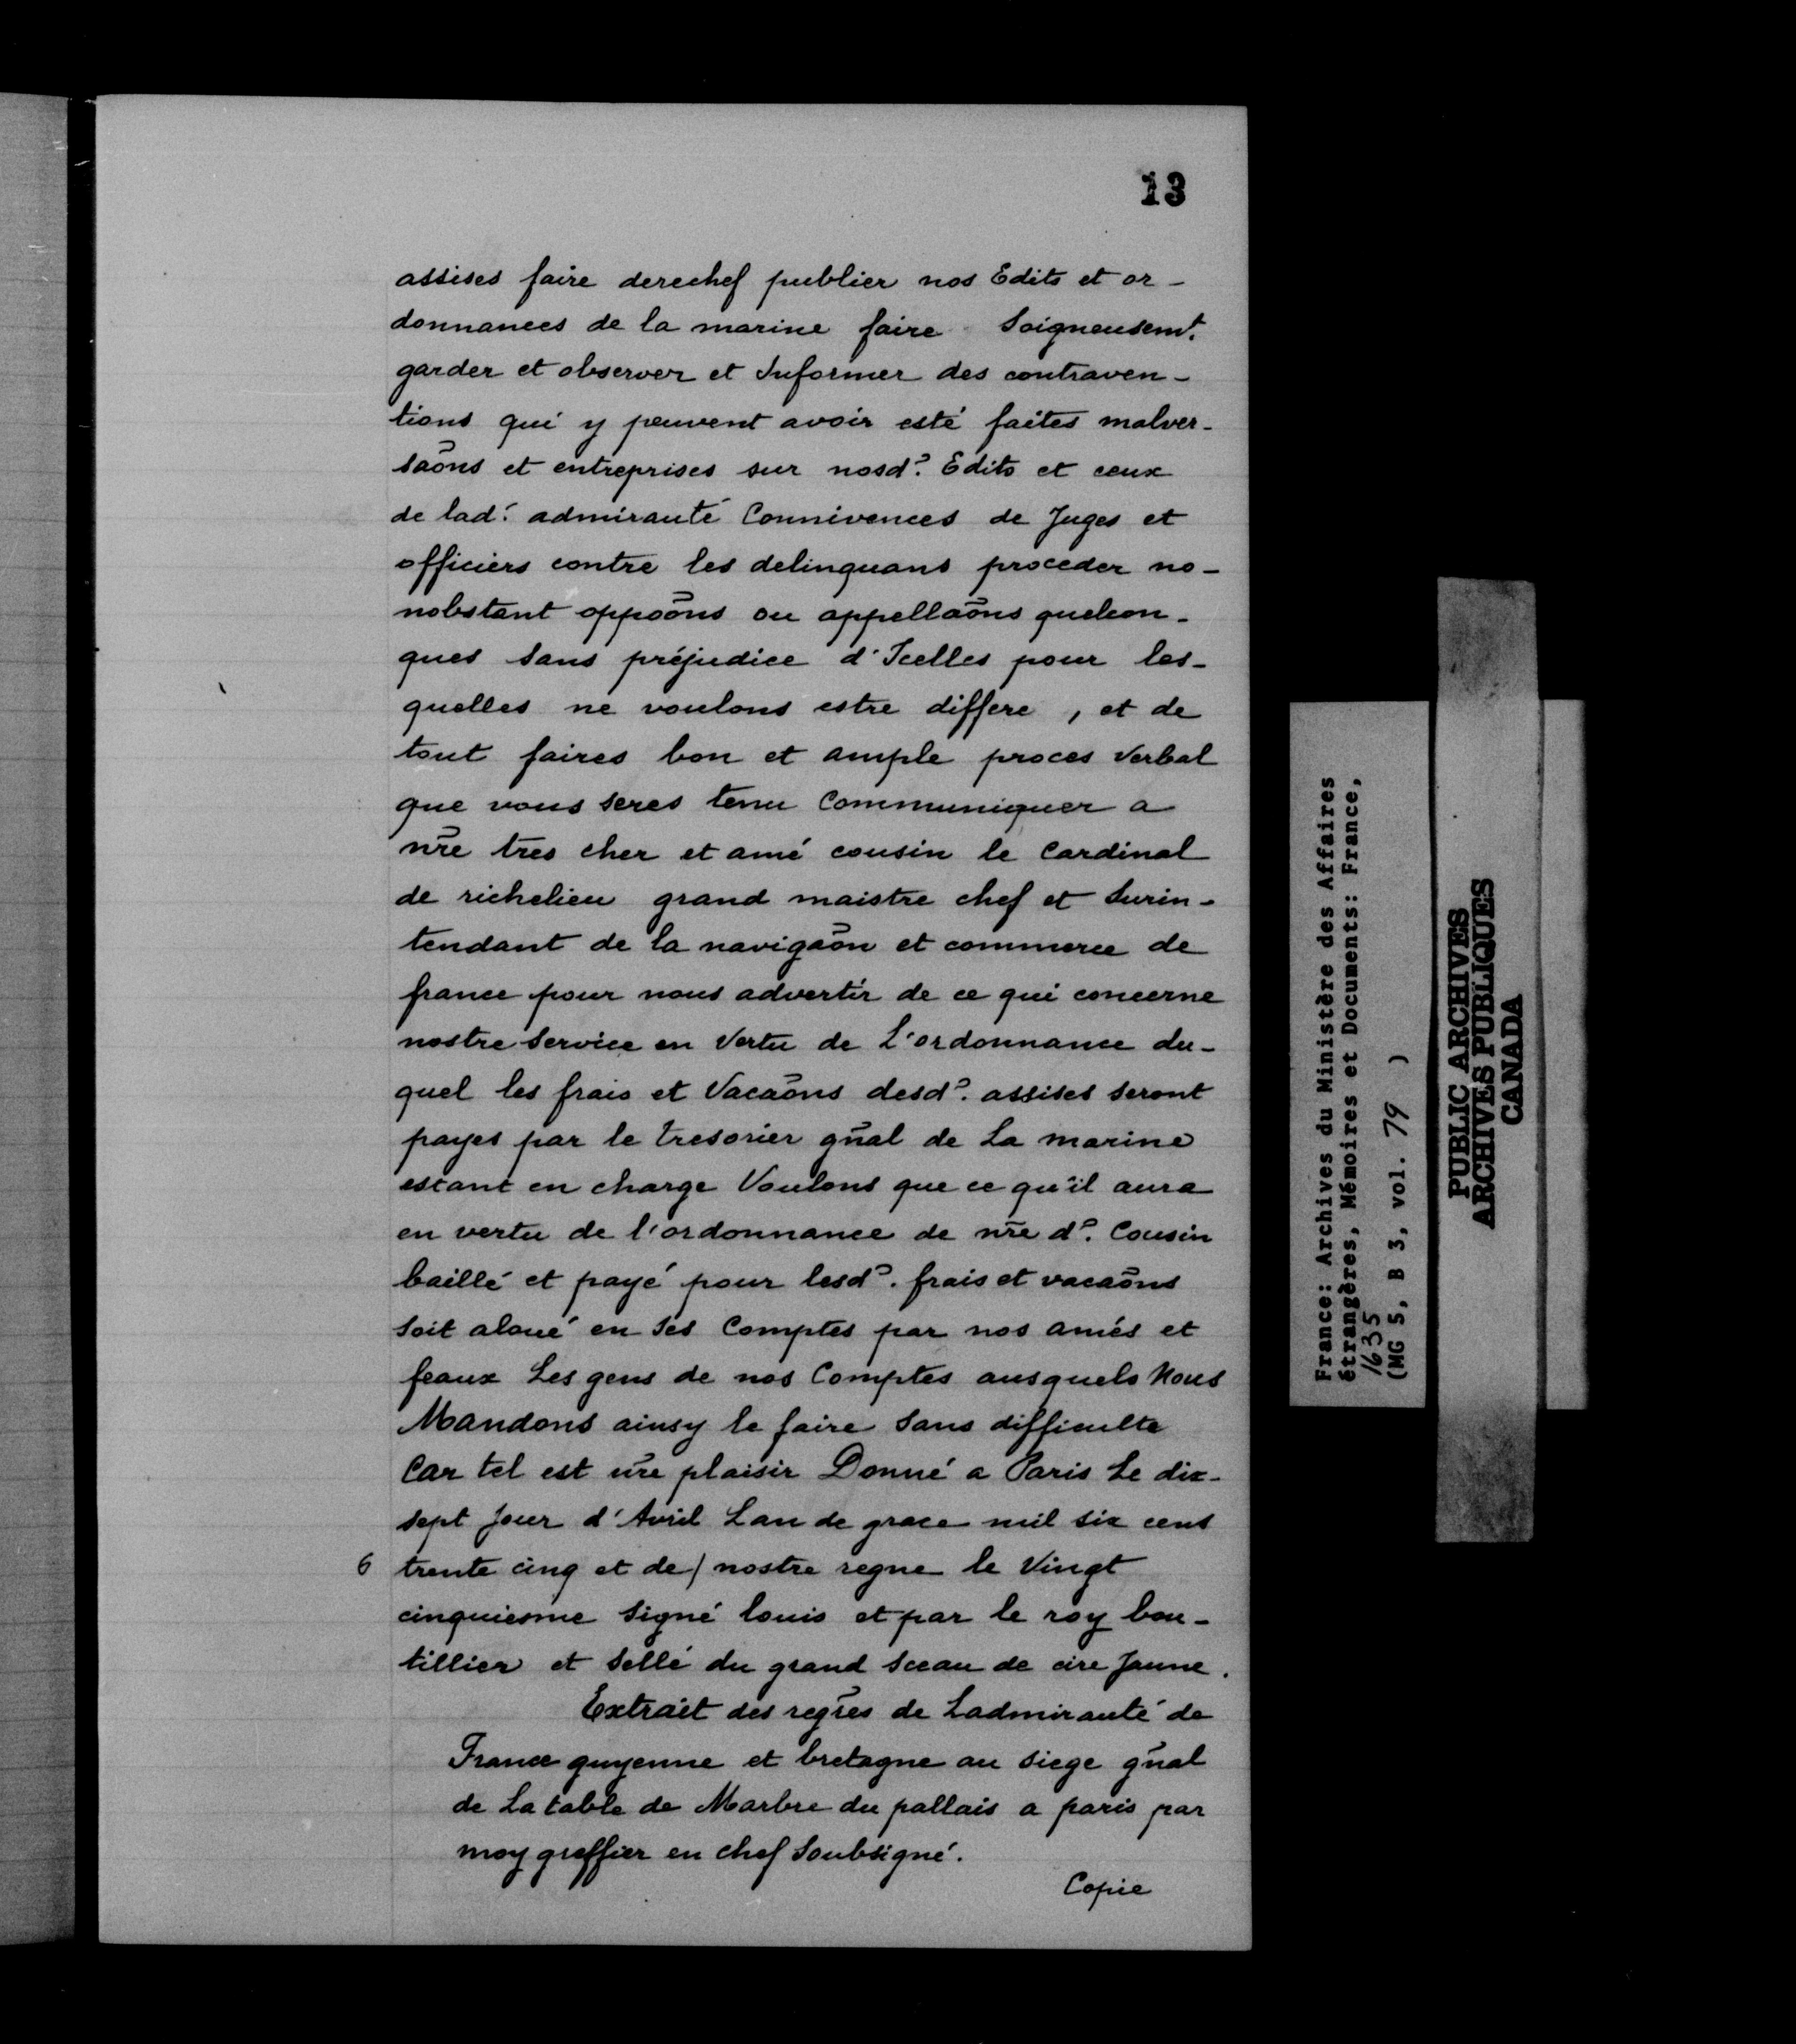 13
assises faire derechef publier nos Edits et or-
donnances de la marine faire Soigneusemt.
garder et observer et Informer des contraven-
tions qui y peuvent avoir esté faites malver-
saōns et entreprises sur nosd? Edits et ceux
de lad: admirauté Connivences de Juges et
officiers contre les delinquans proceder no-
nobstant oppoōns ou appellaōns quelcon-
ques sans préjudice d'Icelles pour les-
quelles ne voulons estre differe, et de
tout faires bon et ample proces Verbal
que vous seres tenu Communiquer a
nr̄e tres cher et amé cousin le Cardinal
de richelieu grand maistre chef et Surin-
tendant de la navigaōn et commerce de
france pour nous advertir de ce qui concerne
nostre Service en Vertu de L'ordonnance du-
quel les frais et Vacaōns desd?. assises seront
payes par le tresorier gn̄al de La marine
estant en charge Voulons que ce qu'il aura
en vertu de l'ordonnance de nr̄e d?. Cousin
baillé et payé pour lesd?. frais et vacaōns
Soit aloué en Ses Comptes par nos amés et
feaux Les gens de nos Comptes ausquels Nous
Mandons ainsy le faire Sans difficulte
Car tel est nr̄e plaisir Donné a Paris Le dix-
sept Jour d'Avril Lan de grace mil six cens
6 trente cinq et de/nostre regne le Vingt
cinquiesme Signé louis et par le roy bou-
tillier et Sellé du grand Sceau de cire Jaune.
Extrait des regr̄es de Ladmirauté de
France guyenne et bretagne au siege gn̄al
de La table de Marbre du pallais a paris par
moy greffier en chef Soubsigné.
Copie
France: Archives du Ministère des Affaires
étrangères, Mémoires et Documents: France,
1635
(MG 5, B 3, vol. 79 )
PUBLIC ARCHIVES
ARCHIVES PUBLIQUES
CANADA